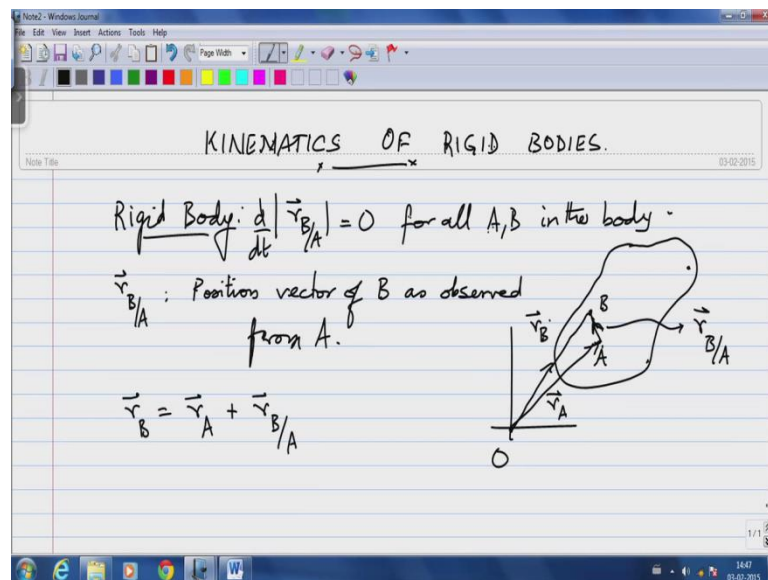 Note2 - Windows Journal
File Edit View Insert Actions Tools Help
Page Width
KINEMATICS OF RIGID BODIES.
Note Title
03-02-2015
Rigid Body: d/dt |r⃗_B/A| = 0 for all A,B in the body.
r⃗_B/A : Position vector of B as observed
from A.
r⃗_B = r⃗_A + r⃗_B/A
B
r⃗_B
A
r⃗_B/A
r⃗_A
O
1/1
14:47
03-02-2015